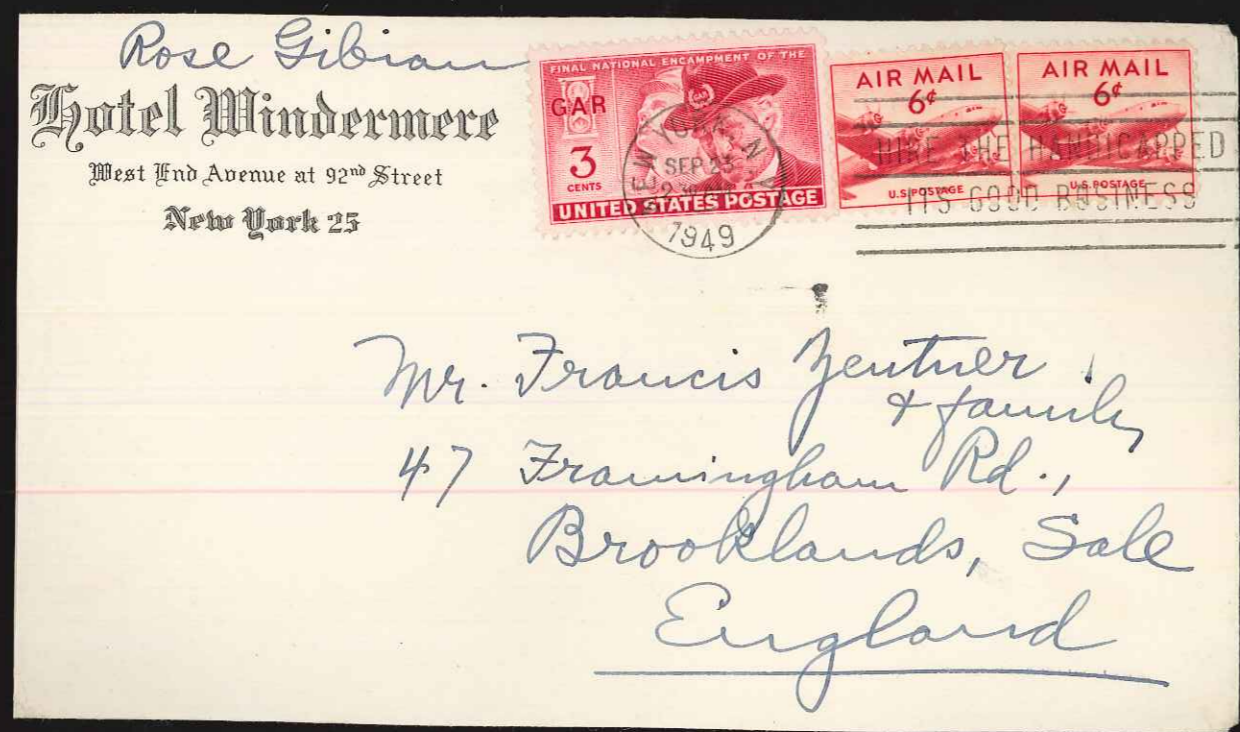 Rose Gibian
Hotel Windermere
West End Avenue at 92nd Street
New York 25
FINAL NATIONAL ENCAMPMENT OF THE
GAR
3
CENTS
UNITED STATES POSTAGE
AIR MAIL
6¢
U.S. POSTAGE
AIR MAIL
6¢
U.S. POSTAGE
NEW YORK, N.Y.
SEP 23
1949
HIRE THE HANDICAPPED
ITS GOOD BUSINESS
Mr. Francis Zentner
& family
47 Framingham Rd.,
Brooklands, Sale
England